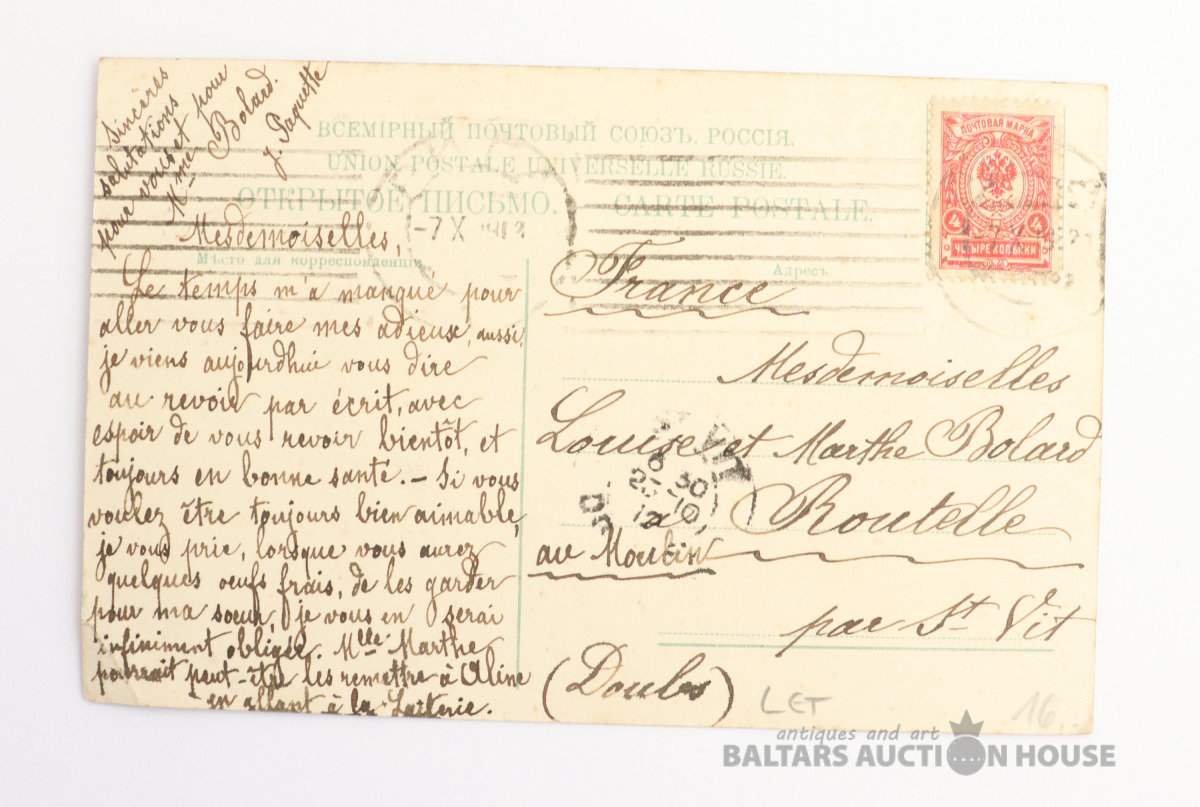 Sincères
salutations
pour vous et pour
Mme Bolard.
J. Paquette
ВСЕМІРНЫЙ ПОЧТОВЫЙ СОЮЗЪ. РОССІЯ.
UNION POSTALE UNIVERSELLE RUSSIE.
ОТКРЫТОЕ ПИСЬМО. — CARTE POSTALE.
-7 X 1912
Мѣсто для корреспонденціи
Адресъ
ПОЧТОВАЯ МАРКА
4 4
ЧЕТЫРЕ КОПѢЙКИ
Mesdemoiselles,
Le temps m'a manqué pour
aller vous faire mes adieux, aussi,
je viens aujourdhui vous dire
au revoir par écrit, avec
espoir de vous revoir bientôt, et
toujours en bonne santé. - Si vous
voulez être toujours bien aimable,
je vous prie, lorsque vous aurez
quelques oeufs frais, de les garder
pour ma soeur, je vous en serai
infiniment obligée. Mlle Marthe
pourrait peut-être les remettre à Aline
en allant à la Laiterie.
France
Mesdemoiselles
Louise et Marthe Bolard
à Routelle
au Moulin
par St Vit
(Doubs)
VIT
30
12
LET
16
antiques and art
BALTARS AUCTION HOUSE